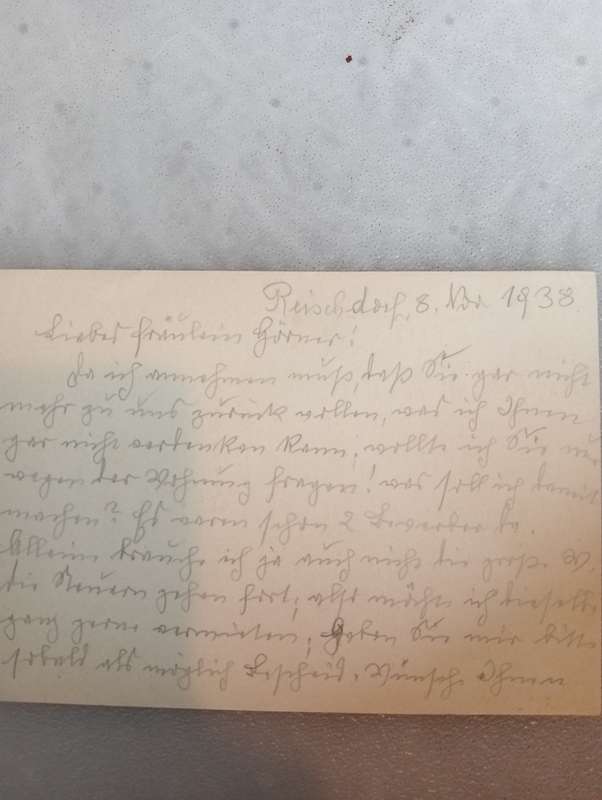 Reischdorf, 8. Nov 1938
Liebes Fräulein Görner!
Da ich annehmen muß, daß Sie gar nicht
mehr zu uns zurück wollen, was ich Ihnen
gar nicht verdenken kann, wollte ich Sie nur
wegen der Wohnung fragen! was soll ich damit
machen? Es waren schon 2 Bewerber da.
Allein brauche ich ja auch nicht die große W.
die Steuern gehen fort; also möchte ich dieselbe
ganz gerne vermieten; Geben Sie mir bitte
sobald als möglich Bescheid. Wünsche Ihnen